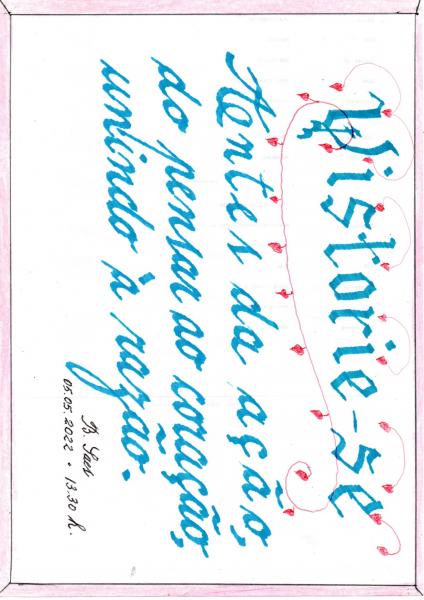 Vistorie-se
Antes da ação,
do pensar ao coração,
unindo à razão.
B Saes
05.05.2022 • 13.30 h.